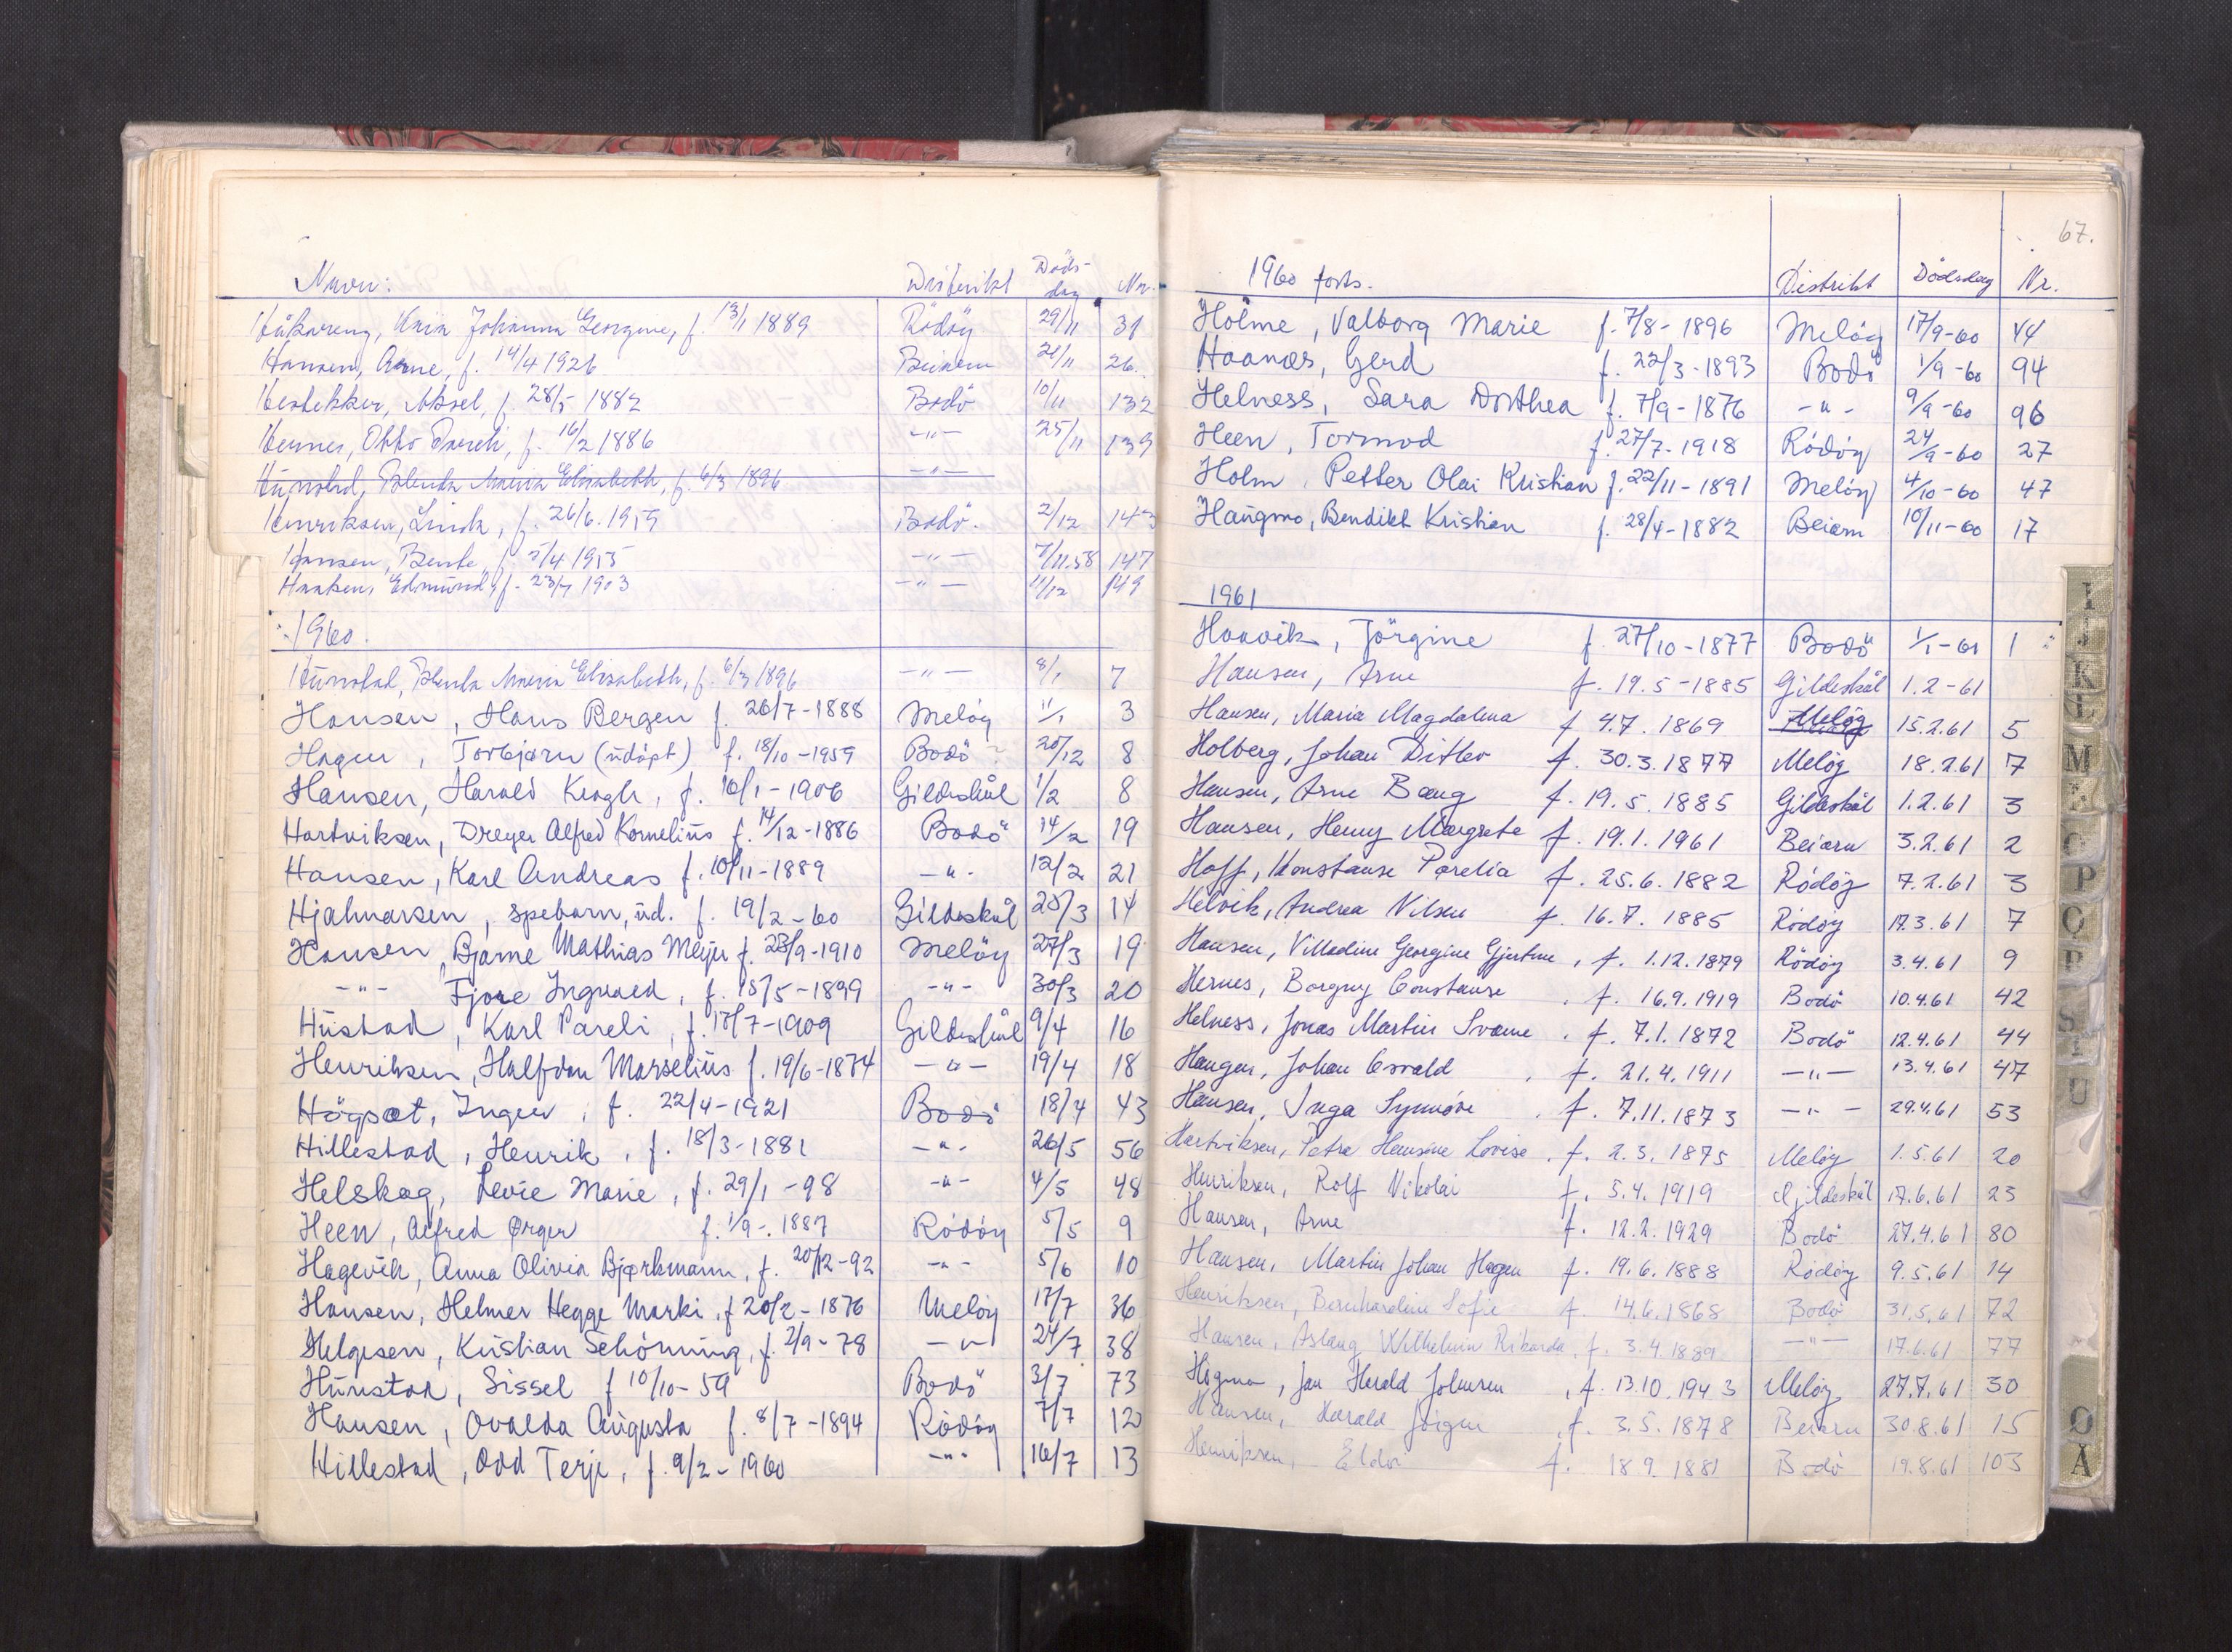 Navn: Distrikt Døds-dag Nr.
Håkareng, Maria Johanna Georgine, f. 13/1 1889 Rödöy 29/11 31
Hansen, Arne, f. 14/4 1926 Beiarn 21/11 26.
Hestekker, Aksel, f. 28/5 1882 Bodö 10/11 132
Hernes, Otto Pareli, f. 16/2 1886 -"- 25/11 139
Hünstad, Blenda Maria Elisabeth, f. 6/3 1896 -"-
Henriksen, Linda, f. 26/6.1959 Bodö. 2/12 143
Hansen, Bente, f. 5/4 1955 -"- 7/11.58 147
Haaken, Edmünd, f. 23/7 1903 -"- 11/12 149
1960.
Hünstad, Blenda Maria Elisabeth, f. 6/3 1896 -"- 8/1 7
Hansen, Hans Bergen f. 26/7-1888 Melöy 11/1 3
Hagen, Torbjørn (üdöpt) f. 18/10-1959 Bodö ? 20/12 8
Hansen, Harald Krogh, f. 16/1-1906 Gildeskål 1/2 8
Hartviksen, Dreyer Alfred Kornelius f. 14/12-1886 Bodö 14/2 19
Hansen, Karl Andreas f. 10/11-1889 -"- 12/2 21
Hjalmarsen, spebarn, üd. f. 19/2-60 Gildeskål 25/3 14
Hansen, Bjarne Mathias Meyer f. 23/9-1910 Melöy 27/3 19
-"- Fjore Ingvald, f. 15/5-1899 -"- 30/3 20
Hüstad, Karl Pareli, f. 13/7-1909 Gildeskål 9/4 16
Henriksen, Halfdan Marselius f. 19/6-1874 -"- 19/4 18
Högset, Inger, f. 22/4-1921 Bodö 18/4 43
Hillestad, Henrik, f. 18/3-1881 -"- 26/5 56
Helskog, Levie Marie, f. 29/1-98 -"- 4/5 48
Heen, Alfred Ørger f. 1/9-1887 Rödöy 5/5 9
Hagevik, Anna Olivia Bjørkmann, f. 20/12-92 -"- 5/6 10
Hansen, Helmer Hegge Marki, f 20/2-1876 Melöy 17/7 36
Helgesen, Kristian Schönning, f. 2/9-78 -"- 24/7 38
Hünstad, Sissel f 10/10-59 Bodö 3/7 73
Hansen, Ovalda Augusta f. 8/7-1894 Rödöy 7/7 12
Hillestad, Odd Terje, f. 9/2-1960 -"- 16/7 13
67.
1960 forts. Distrikt Dödsdag Nr.
Holme, Valborg Marie f. 7/8-1896 Melöy 17/9-60 44
Haanæs, Gerd f. 22/3-1893 Bodö 1/9-60 94
Helness, Sara Dorthea f. 7/9-1876 -"- 9/9-60 96
Heen, Tormod f. 27/7-1918 Rödöy 24/9-60 27
Holm, Petter Olai Kristian f. 22/11-1891 Melöy 4/10-60 47
Haugmo, Bendikt Kristian f. 28/4-1882 Beiarn 10/11-60 17
1961
Haavik, Jörgine f. 27/10-1877 Bodö 1/1-61 1
Hansen, Arne f. 19.5-1885 Gildeskål 1.2-61
Hansen, Maria Magdalena f 4.7.1869 Melöy 15.2.61 5
Holberg, Johan Ditlev f. 30.3.1877 Meløy 18.2.61 7
Hansen, Arne Bang f. 19.5.1885 Gildeskål 1.2.61 3
Hansen, Henny Margrete f. 19.1.1961 Beiarn 3.2.61 2
Hoff, Konstanse Parelia f. 25.6.1882 Rödöy 7.2.61 3
Helvik, Andrea Nilsen f. 16.7.1885 Rödöy 17.3.61 7
Hansen, Villadine Georgine Gjertine, f. 1.12.1879 Rödöy 3.4.61 9
Hernes, Borgny Constanse, f. 16.9.1919 Bodö 10.4.61 42
Helness, Jonas Martin Svane, f. 7.1.1872 Bodö 12.4.61 44
Haugen, Johan Osvald, f. 21.4.1911 -"- 13.4.61 47
Hansen, Inga Synnöve, f. 7.11.1873 -"- 29.4.61 53
Hartviksen, Petra Hansine Lovise, f. 2.3.1875 Melöy 1.5.61 20
Henriksen, Rolf Nikolai f. 5.4.1919 Gildeskål 17.6.61 23
Hansen, Arne f. 12.2.1929 Bodö 27.4.61 80
Hansen, Martin Johan Hagen f. 19.6.1888 Rödöy 9.5.61 14
Henriksen, Bernhardine Sofie f. 14.6.1868 Bodö 31.5.61 72
Hansen, Aslaug Wilhelmin Rikarda, f. 3.4.1889 -"- 17.6.61 77
Högmo, Jan Harald Johnsen, f. 13.10.1943 Melöy 27.7.61 30
Hansen, Harald Jörgen, f. 3.5.1878 Beiarn 30.8.61 15
Henriksen, Eldor f. 18.9.1881 Bodö 19.8.61 103
I
J
K
L
M
N
O
P
S
U
Ø
Å